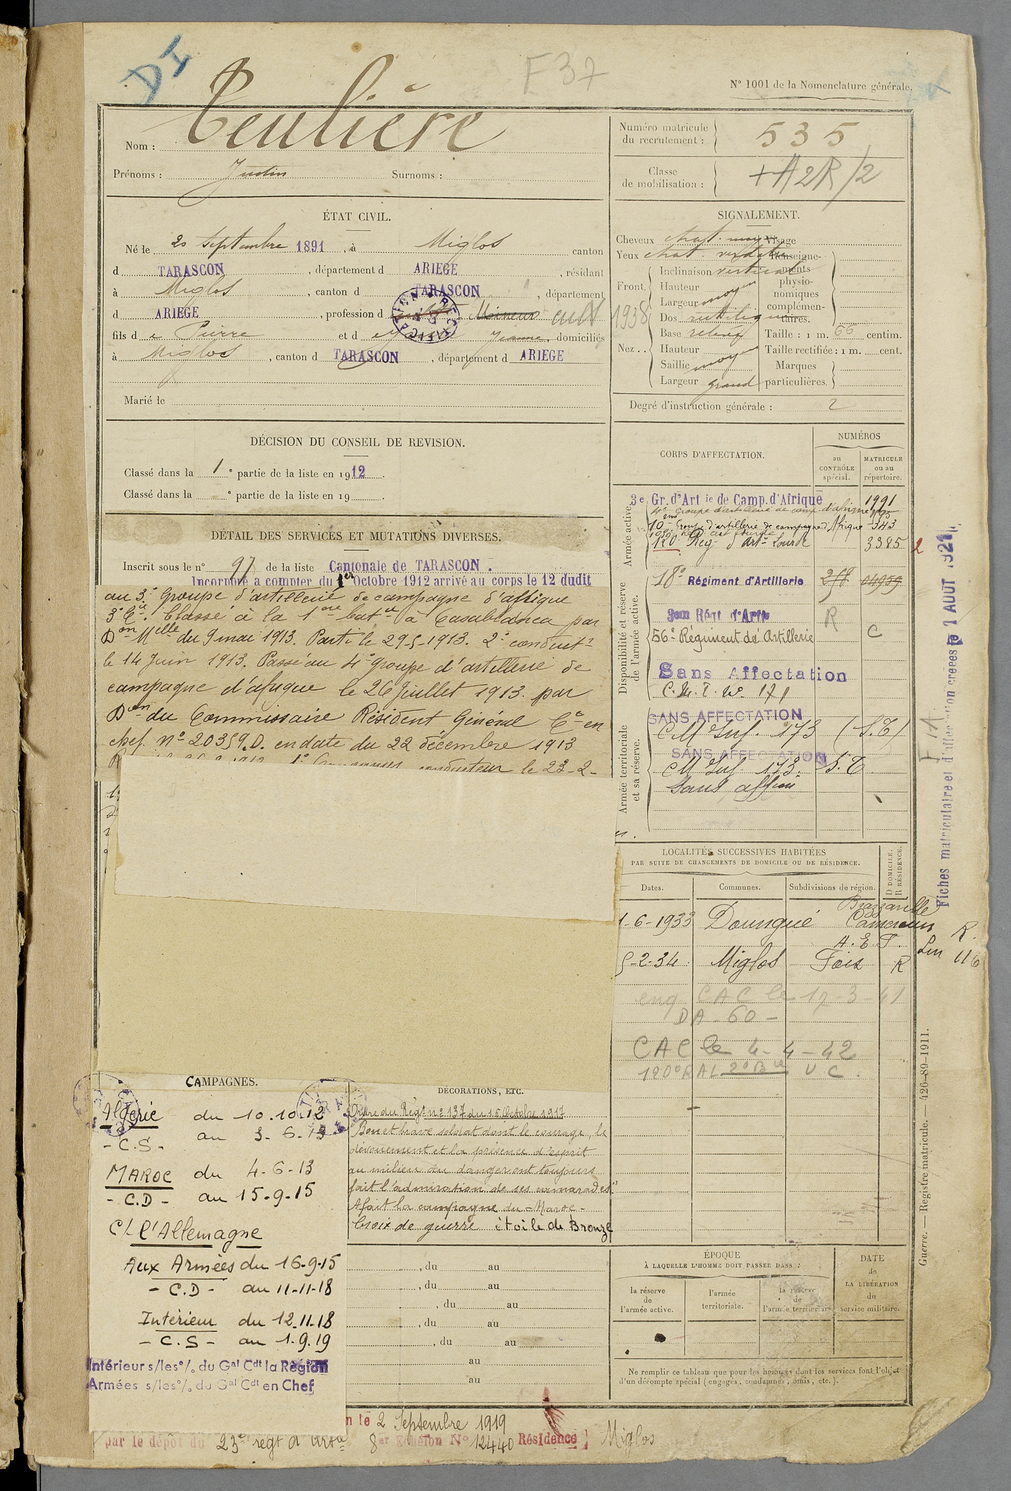 DI
F 37
N° 1001 de la Nomenclature générale.
Nom : Teulière
Prénoms : Justin Surnoms :
Numéro matricule du recrutement : 535
Classe de mobilisation : + A2R/2
ÉTAT CIVIL.
Né le 20 Septembre 1891, à Miglos canton
d TARASCON, département d ARIEGE, résidant
à Miglos, canton d TARASCON, département
d ARIEGE, profession d Mineur cult
fils d e Pierre et d Jeanne, domiciliés
à Miglos, canton d TARASCON, département d ARIEGE
Marié le
SIGNALEMENT.
Cheveux chat. Visage
Yeux chat. Renseignements physionomiques complémentaires.
Front. Inclinaison verticale
Hauteur
Largeur moy
1938
Nez .. Dos rectiligne
Base relevé Taille : 1 m. 66 centim.
Hauteur Taille rectifiée : 1 m. cent.
Saillie moy Marques
Largeur grand particulières.
Degré d'instruction générale : 2
DÉCISION DU CONSEIL DE REVISION.
Classé dans la 1e partie de la liste en 1912.
Classé dans la e partie de la liste en 19
DÉTAIL DES SERVICES ET MUTATIONS DIVERSES.
Inscrit sous le n° 97 de la liste Cantonale de TARASCON.
Incorporé a compter du 1er Octobre 1912 arrivé au corps le 12 dudit
au 3e Groupe d'artillerie de campagne d'afrique
3e Cie. Classé à la 1ere batie à Casablanca par
Don Melle du 9 mai 1913. Parti le 29-5-1913. 2e conductr
le 14 Juin 1913. Passé au 4e groupe d'artillerie de
campagne d'afrique le 26 Juillet 1913. par
Don du Commissaire Résident Général Ct en
chef. n° 2035 9.D. en date du 22 décembre 1913
conducteur le 23-2-
CORPS D'AFFECTATION.
NUMÉROS
au CONTRÔLE spécial.
MATRICULE ou au répertoire.
Armée active.
3e. Gr. d'Art ie de Camp. d'Afrique 1991
4e Groupe d'artillerie de camp. d'afrique
10e Groupe d'artillerie de campagne d'Afrique 343
120e Reg. d'Art. Lourde 3385 2
Disponibilité et réserve de l'armée active.
18e Régiment d'Artillerie
3em Régt d'Artie R
56e Régiment de Artillerie C
Sans Affectation
C. M. T. W. 171
Armée territoriale et sa réserve.
SANS AFFECTATION
C. M Inf. 173 (S.T)
SANS AFFECTATION
CM Inf 173. S.T
Sans affon
Fiches matriculaire et d'affection créées le 1 AOUT 1921
LOCALITÉS SUCCESSIVES HABITÉES
PAR SUITE DE CHANGEMENTS DE DOMICILE OU DE RÉSIDENCE.
Dates. Communes. Subdivisions de région. D DOMICILE. R RÉSIDENCE.
Brazzaville
1-6-1933 Doungué Cameroun R.
A. E. F. Lm 116
5-2-34 Miglos Foix R
eng. CAC le 17-3-41
DA - 60 -
CAC le 4-4-42
120e RAL 20e Bie U C.
CAMPAGNES.
Algérie du 10.10.12
- C.S - au 3-6-13
MAROC du 4-6-13
- C.D - au 15-9-15
C/ L'Allemagne
Aux Armées du 16-9-15
- C.D - au 11-11-18
Intérieur du 12.11.18
- C.S - au 1.9.19
Intérieur s/les °/. du Gal Cdt la Région
Armées s/les °/. du Gal Cdt en Chef
DÉCORATIONS, ETC.
Ordre du Régt n° 137 du 15 Octobre 1917
"Bon et brave soldat dont le courage, le
dévouement et la présence d'esprit
au milieu du danger ont toujours
fait l'admiration de ses camarades"
A fait la campagne du Maroc -
Croix de guerre étoile de Bronze
, du au
, du au
, du au
, du au
, du au
au
au
ÉPOQUE
À LAQUELLE L'HOMME DOIT PASSER DANS :
la réserve de l'armée active.
l'armée territoriale.
la réserve de l'armée territoriale.
DATE de LA LIBÉRATION du service militaire.
Ne remplir ce tableau que pour les hommes dont les services font l'objet
d'un décompte spécial (engagés, condamnés, omis, etc.).
Guerre. — Registre matricule. — 426-89-1911.
n le 2 Septembre 1919
par le dépôt du 23e regt d'Artie 8er Echelon N° 12440 Résidence Miglos